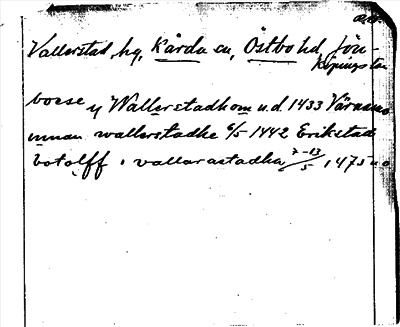 Vallerstad, hg, Kärda sn, Östbo hd, Jön-
köpings län
bosse y Wallerstadhom u.d. 1433 Värnamo
innan wallerstadhe 6/5 1442 Erikstad
botolff i vallarastadha 2-13/5 1475